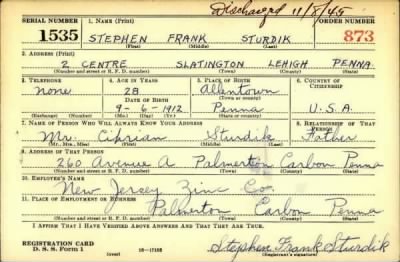 Discharged 11/8/45
SERIAL NUMBER 1. NAME (Print) ORDER NUMBER
1535 STEPHEN FRANK STURDIK 873
(First) (Middle) (Last)
2. ADDRESS (Print)
2 CENTRE SLATINGTON LEHIGH PENNA.
(Number and street or R. F. D. number) (Town) (County) (State)
3. TELEPHONE 4. AGE IN YEARS 5. PLACE OF BIRTH 6. COUNTRY OF CITIZENSHIP
none 28 Allentown
DATE OF BIRTH (Town or county)
9-6-1912 Penna U.S.A.
(Exchange) (Number) (Mo.) (Day) (Yr.) (State or country)
7. NAME OF PERSON WHO WILL ALWAYS KNOW YOUR ADDRESS 8. RELATIONSHIP OF THAT PERSON
Mr. Ciprian Sturdik Father
(Mr., Mrs., Miss) (First) (Middle) (Last)
9. ADDRESS OF THAT PERSON
260 Avenue A Palmerton Carbon Penna
(Number and street or R. F. D. number) (Town) (County) (State)
10. EMPLOYER'S NAME
New Jersey Zinc Co.
11. PLACE OF EMPLOYMENT OR BUSINESS
Palmerton Carbon Penna
(Number and street or R. F. D. number) (Town) (County) (State)
I AFFIRM THAT I HAVE VERIFIED ABOVE ANSWERS AND THAT THEY ARE TRUE.
REGISTRATION CARD
D. S. S. Form 1 16-17105 Stephen Frank Sturdik
(Registrant's signature)